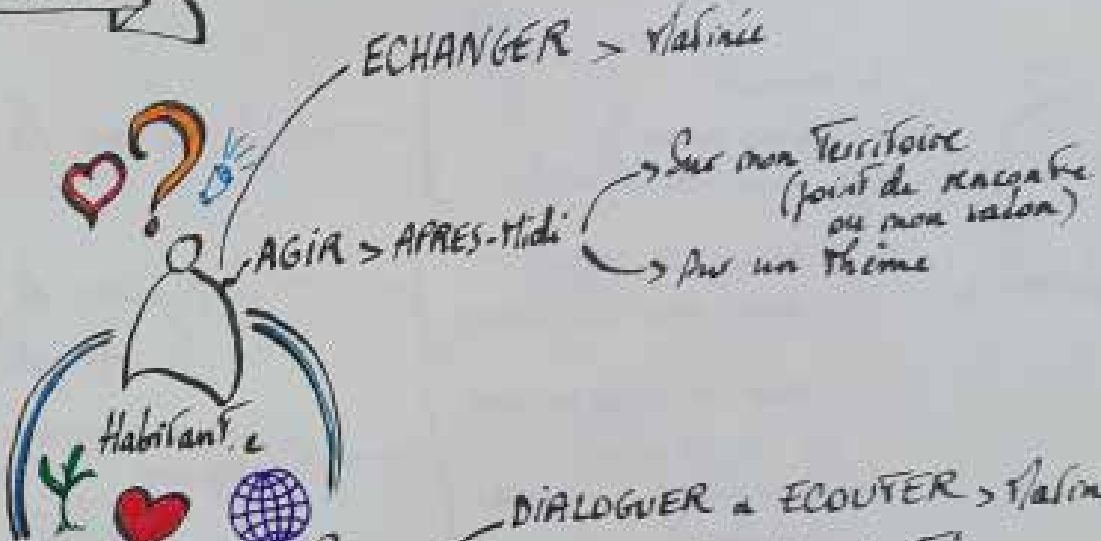 ECHANGER > Matinée
AGIR > APRES-Midi
→ Sur mon Territoire
(point de rencontre
ou mon vallon)
→ Sur un Thème
Habitant.e
DIALOGUER & ECOUTER > Matin